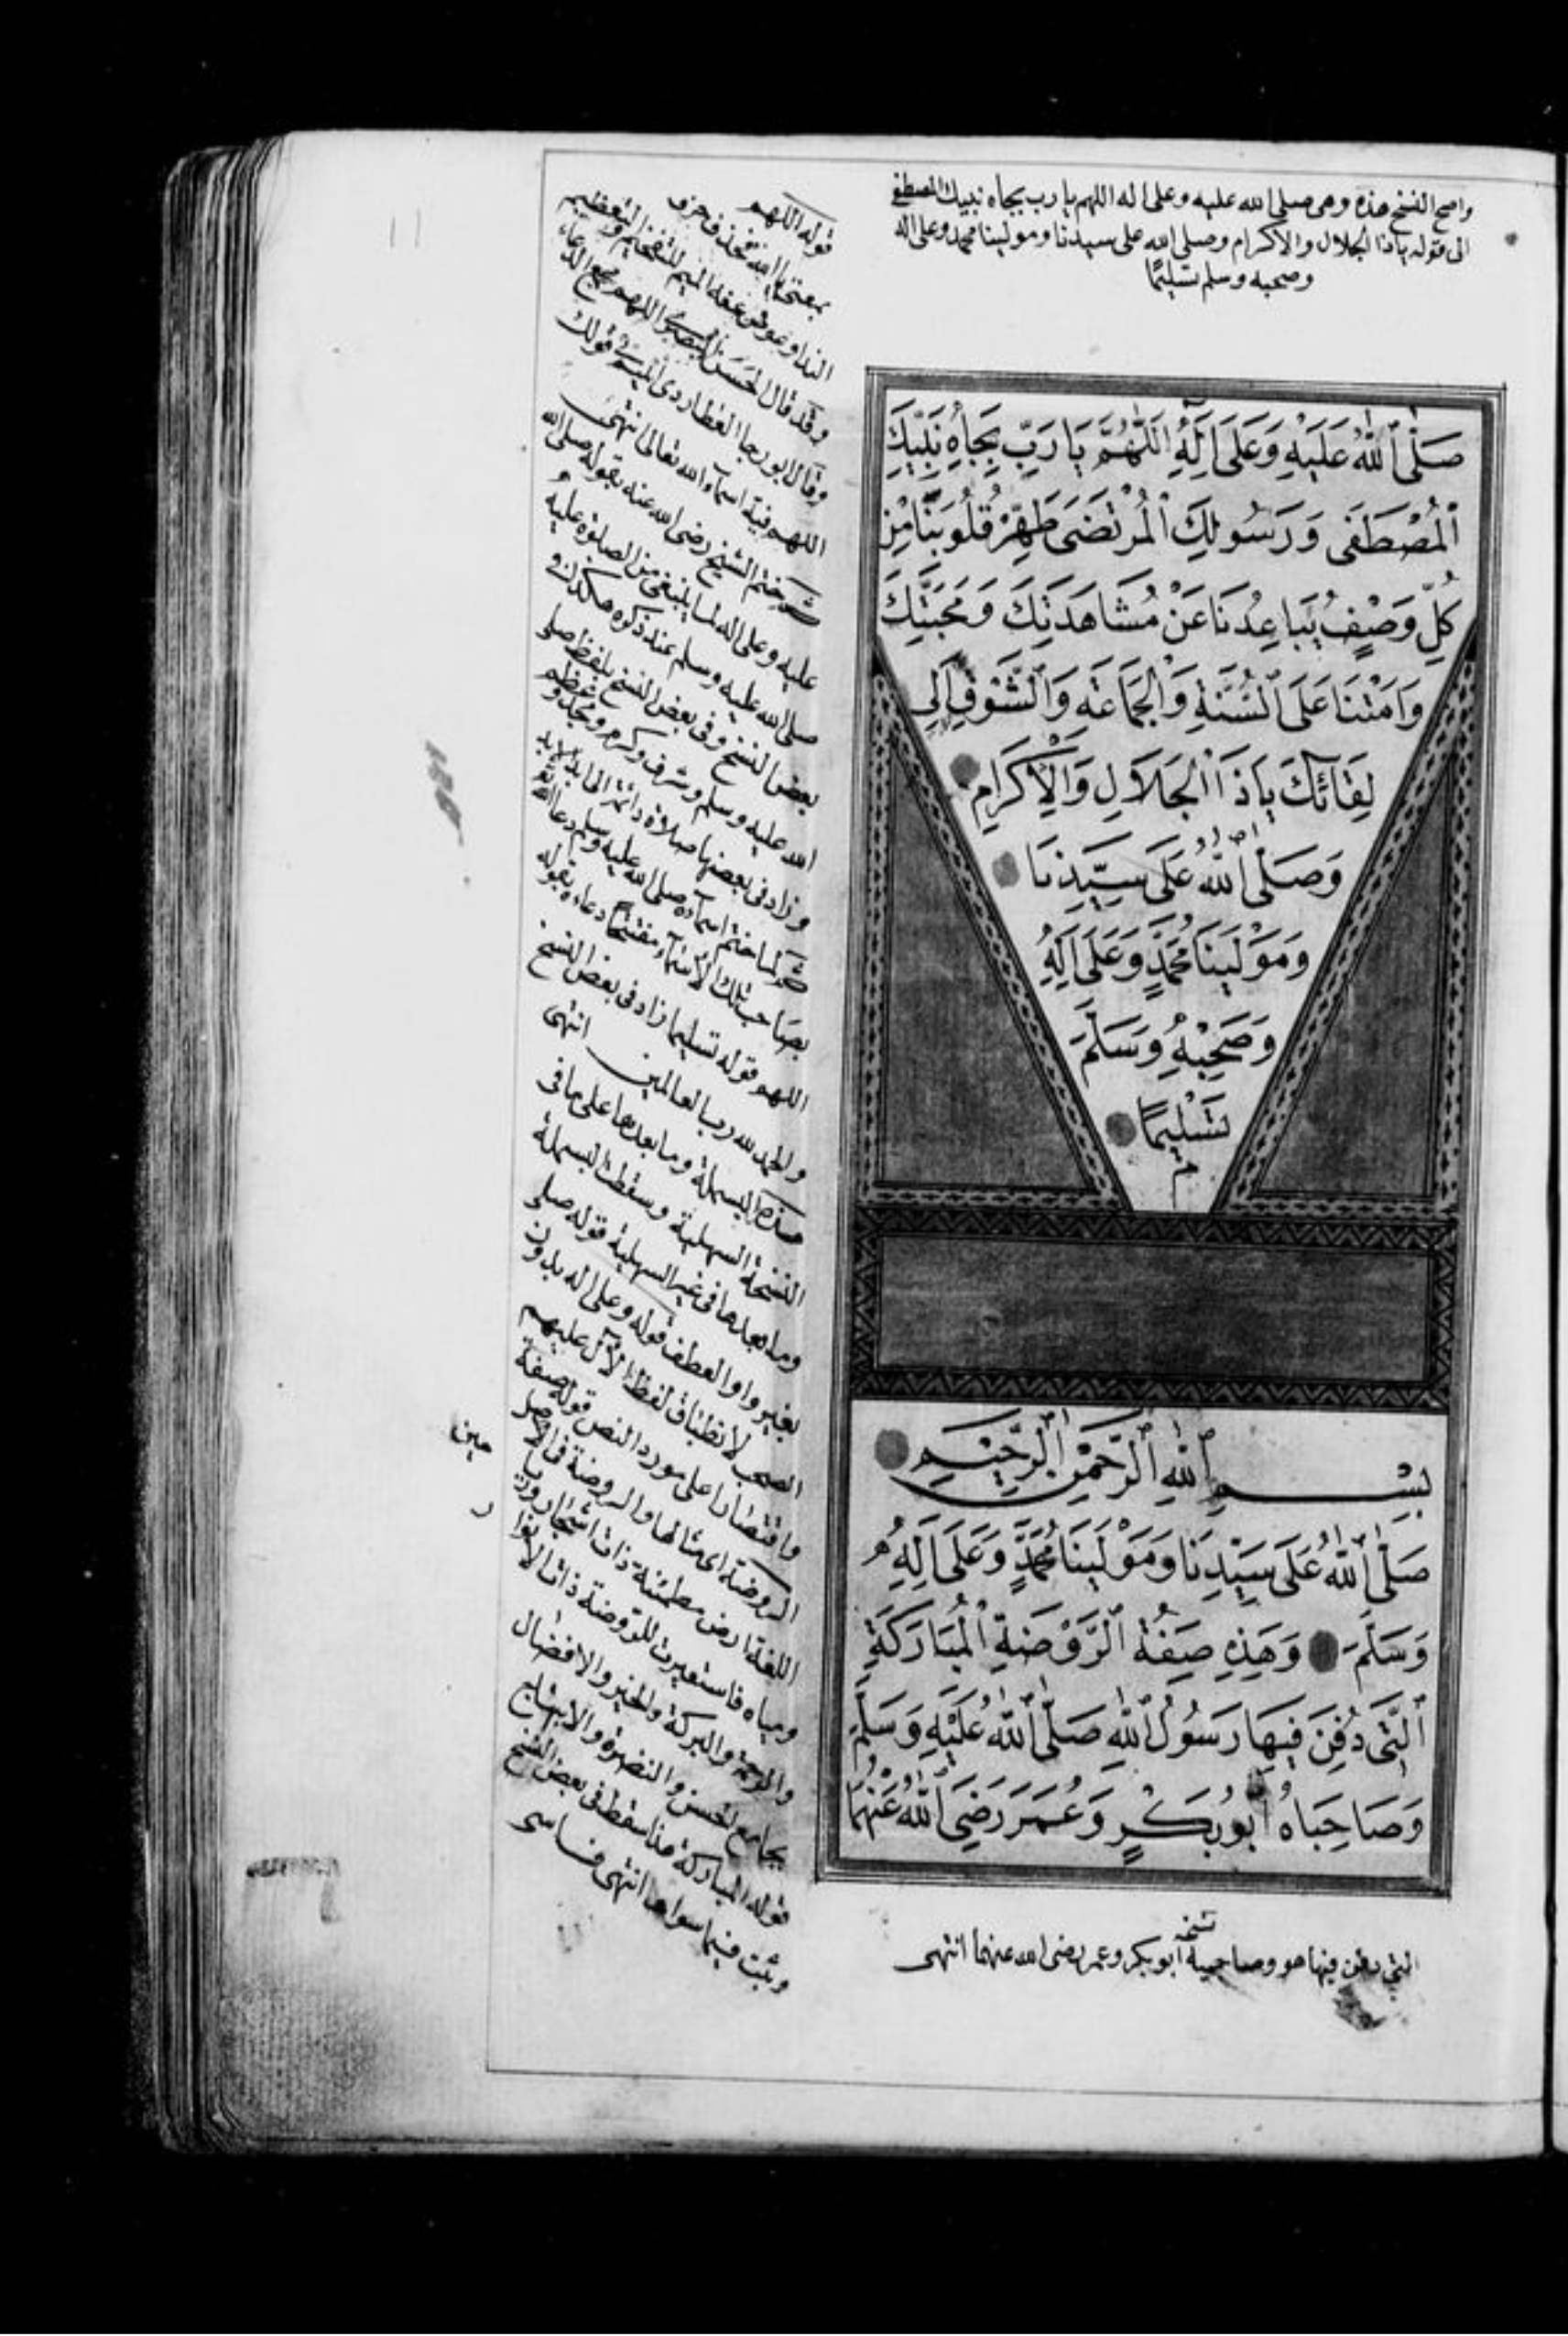 واصح النسخ هذه وهى صلى الله عليه وعلى اله اللهم يا رب بجاه نبيك المصطفى
الى قوله ياذا الجلال والاكرام وصلى الله على سيدنا ومولينا محمد وعلى اله
وصحبه وسلم تسليمًا
صَلَّى ٱللّٰهُ عَلَيْهِ وَعَلَى اٰلِهِ اَللّٰهُمَّ يَا رَبِّ بِجَاهِ نَبِيِّكَ
ٱلْمُصْطَفَى وَرَسُولِكَ ٱلْمُرْتَضَى طَهِّرْ قُلُوبَنَا مِنْ
كُلِّ وَصْفٍ يُبَاعِدُنَا عَنْ مُشَاهَدَتِكَ وَمَحَبَّتِكَ
وَاَمِتْنَا عَلَى ٱلسُّنَّةِ وَٱلْجَمَاعَةِ وَٱلشَّوْقِ اِلَى
لِقَائِكَ يَاذَا ٱلْجَلَالِ وَٱلْاِكْرَامِ
وَصَلَّى ٱللّٰهُ عَلَى سَيِّدِنَا
وَمَوْلَينَا مُحَمَّدٍ وَعَلَى اٰلِهِ
وَصَحْبِهِ وَسَلَّمَ
تَسْلِيمًا
م
بِسْمِ ٱللّٰهِ ٱلرَّحْمٰنِ ٱلرَّحِيمِ
صَلَّى ٱللّٰهُ عَلَى سَيِّدِنَا وَمَوْلَينَا مُحَمَّدٍ وَعَلَى اٰلِهِ
وَسَلَّمَ وَهَذِهِ صِفَةُ ٱلرَّوْضَةِ ٱلْمُبَارَكَةِ
ٱلَّتِى دُفِنَ فِيهَا رَسُولُ ٱللّٰهِ صَلَّى ٱللّٰهُ عَلَيْهِ وَسَلَّمَ
وَصَاحِبَاهُ اَبُو بَكْرٍ وَعُمَرَ رَضِىَ ٱللّٰهُ عَنْهُمَا
نسخه
التى دفن فيها هو وصاحبيه ابو بكر وعمر رضى الله عنهما انتهى
قوله اللهم
بمعنى يا الله حرف
النداء وعوض عنه الميم للتفخيم والتعظيم
وقد قال الحسن البصرى اللهم مجمع الدعاء
وقال ابو رجا العطاردى الميم فى قولك
اللهم فيه اسماء الله تعالى انتهى
ختم الشيخ رضى الله عنه بقوله صلى الله
عليه وعلى اله لما ينبغى من الصلوة عليه
صلى الله عليه وسلم عند ذكره هكذا فى
بعض النسخ وفى بعض النسخ بلفظ صلى
الله عليه وسلم وشرف وكرم ومجد وعظم
وزاد فى بعضها صلاة دائمة الى الابد
ولما ختم اسماءه صلى الله عليه وسلم دعا الله
بصاحب تلك الاسماء مفتتحا دعاءه بقوله
اللهم قوله تسليما زاد فى بعض النسخ
والحمد لله رب العالمين انتهى
هذه البسملة وما بعدها على ما فى
النسخة السهلية وسقطت البسملة
وما بعدها فى غير السهلية قوله صلى
بغير واو العطف قوله وعلى اله بدون
الصحب لانطباق لفظ الال عليهم
واقتصارا على مورد النص قوله صفة
الروضة اى مثالها والروضة فى الاصل
اللغة ارض مطمئنة ذات اشجار
ومياه فاستعيرت للروضة ذات الانوار
والرحمة والبركة والخير والافضال
بجامع الحسن والنضرة والابتهاج
قوله المباركة هذا سقط فى بعض النسخ
وثبت فيما سواها انتهى فاسى